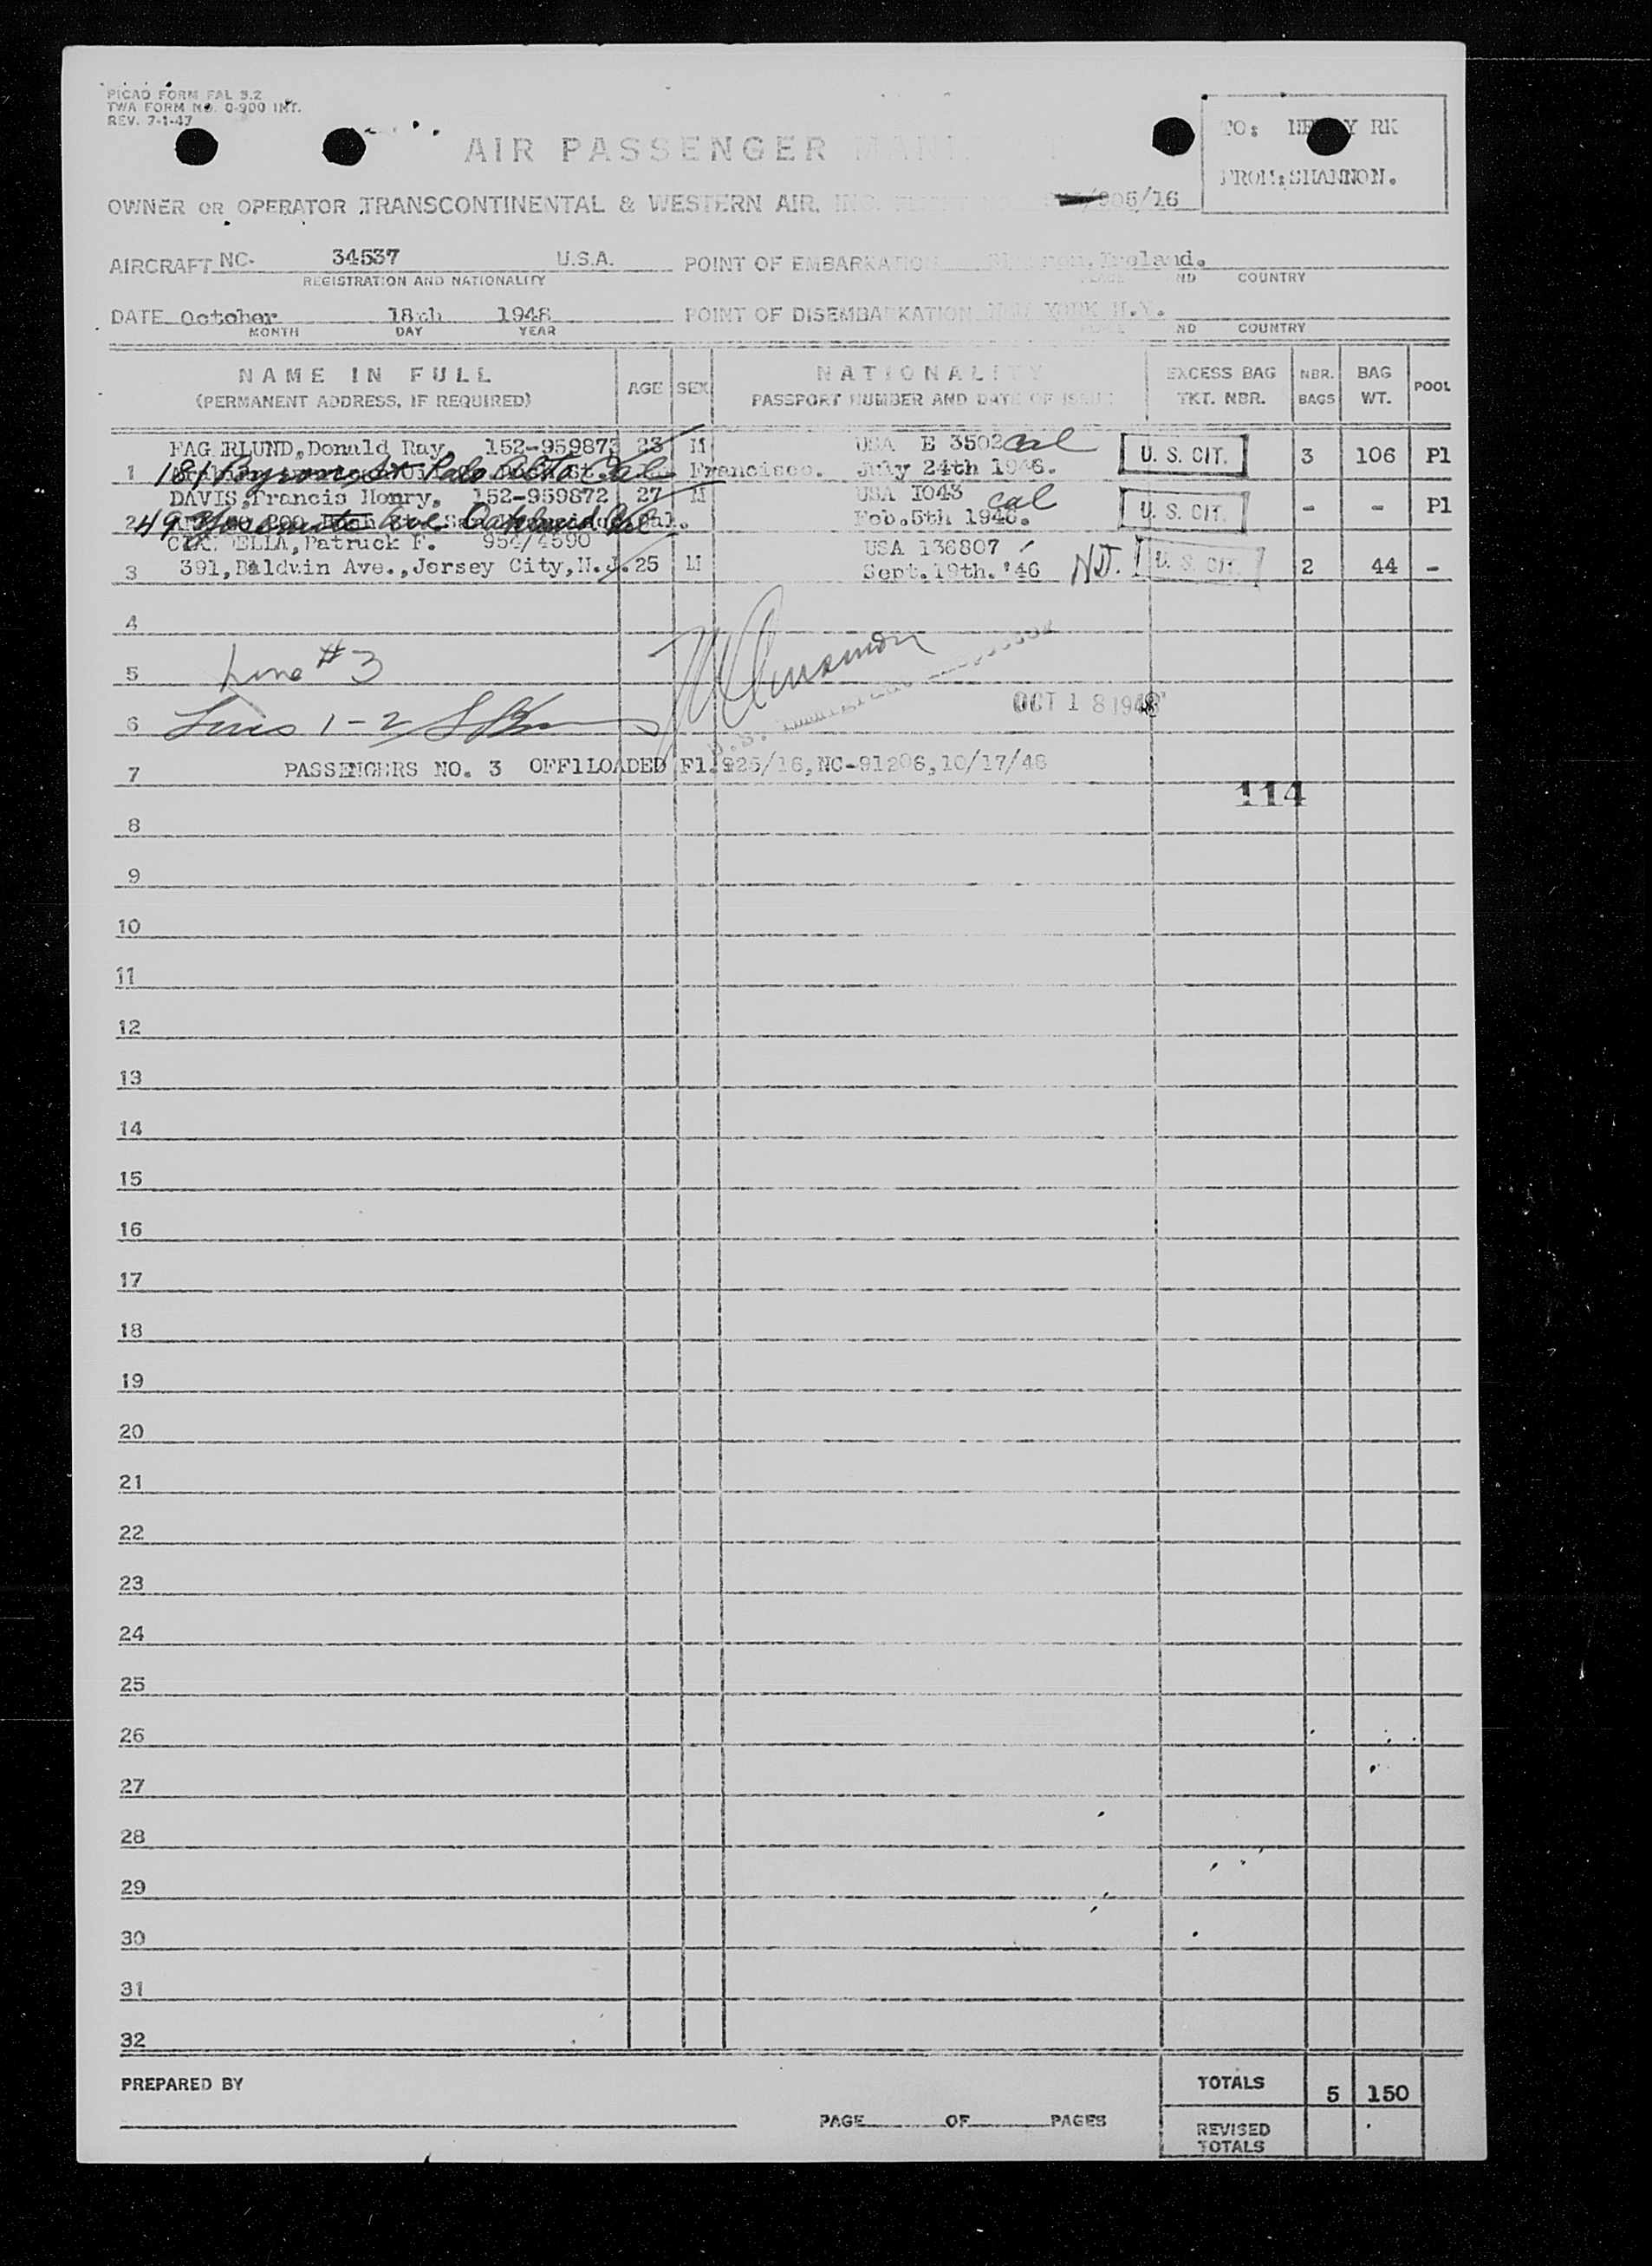 PICAO FORM FAL 3.2
TWA FORM NO. 0-900 INT.
REV. 7-1-47
AIR PASSENGER
TO: NEW Y RK
FROM: SHANNON.
OWNER OR OPERATOR TRANSCONTINENTAL & WESTERN AIR, INC. 905/16
AIRCRAFT NC- 34537 U.S.A. POINT OF EMBARKATION Shannon, Ireland.
REGISTRATION AND NATIONALITY PLACE ND COUNTRY
DATE October 18th 1948 POINT OF DISEMBARKATION NEW YORK N.Y.
MONTH DAY YEAR PLACE ND COUNTRY
NAME IN FULL AGE SEX NATIONALITY EXCESS BAG NBR. BAG POOL
(PERMANENT ADDRESS, IF REQUIRED) PASSPORT NUMBER AND DATE OF ISSUE TKT. NBR. BAGS WT.
FAG RLUND, Donald Ray 152-959873 23 M USA E 3502 Cal
1 181 Byron St Palo Alto Cal Francisco. July 24th 1946. U. S. CIT. 3 106 P1
DAVIS, Francis Henry, 152-959872 27 M USA I043 Cal
2 49 Ave Oakland Cal Feb. 5th 1946. U. S. CIT. - - P1
ELLA, Patruck F. 954/4590 USA 136807
3 391, Baldwin Ave., Jersey City, N.J. 25 M Sept. 19th. '46 N.J. U. S. CIT. 2 44 -
4
5 Line #3
6 Lines 1-2 OCT 18 1948
7 PASSENGERS NO. 3 OFF1LOADED Fl. 925/16, NC-91206, 10/17/48
114
8
9
10
11
12
13
14
15
16
17
18
19
20
21
22
23
24
25
26
27
28
29
30
31
32
PREPARED BY TOTALS 5 150
PAGE OF PAGES
REVISED
TOTALS